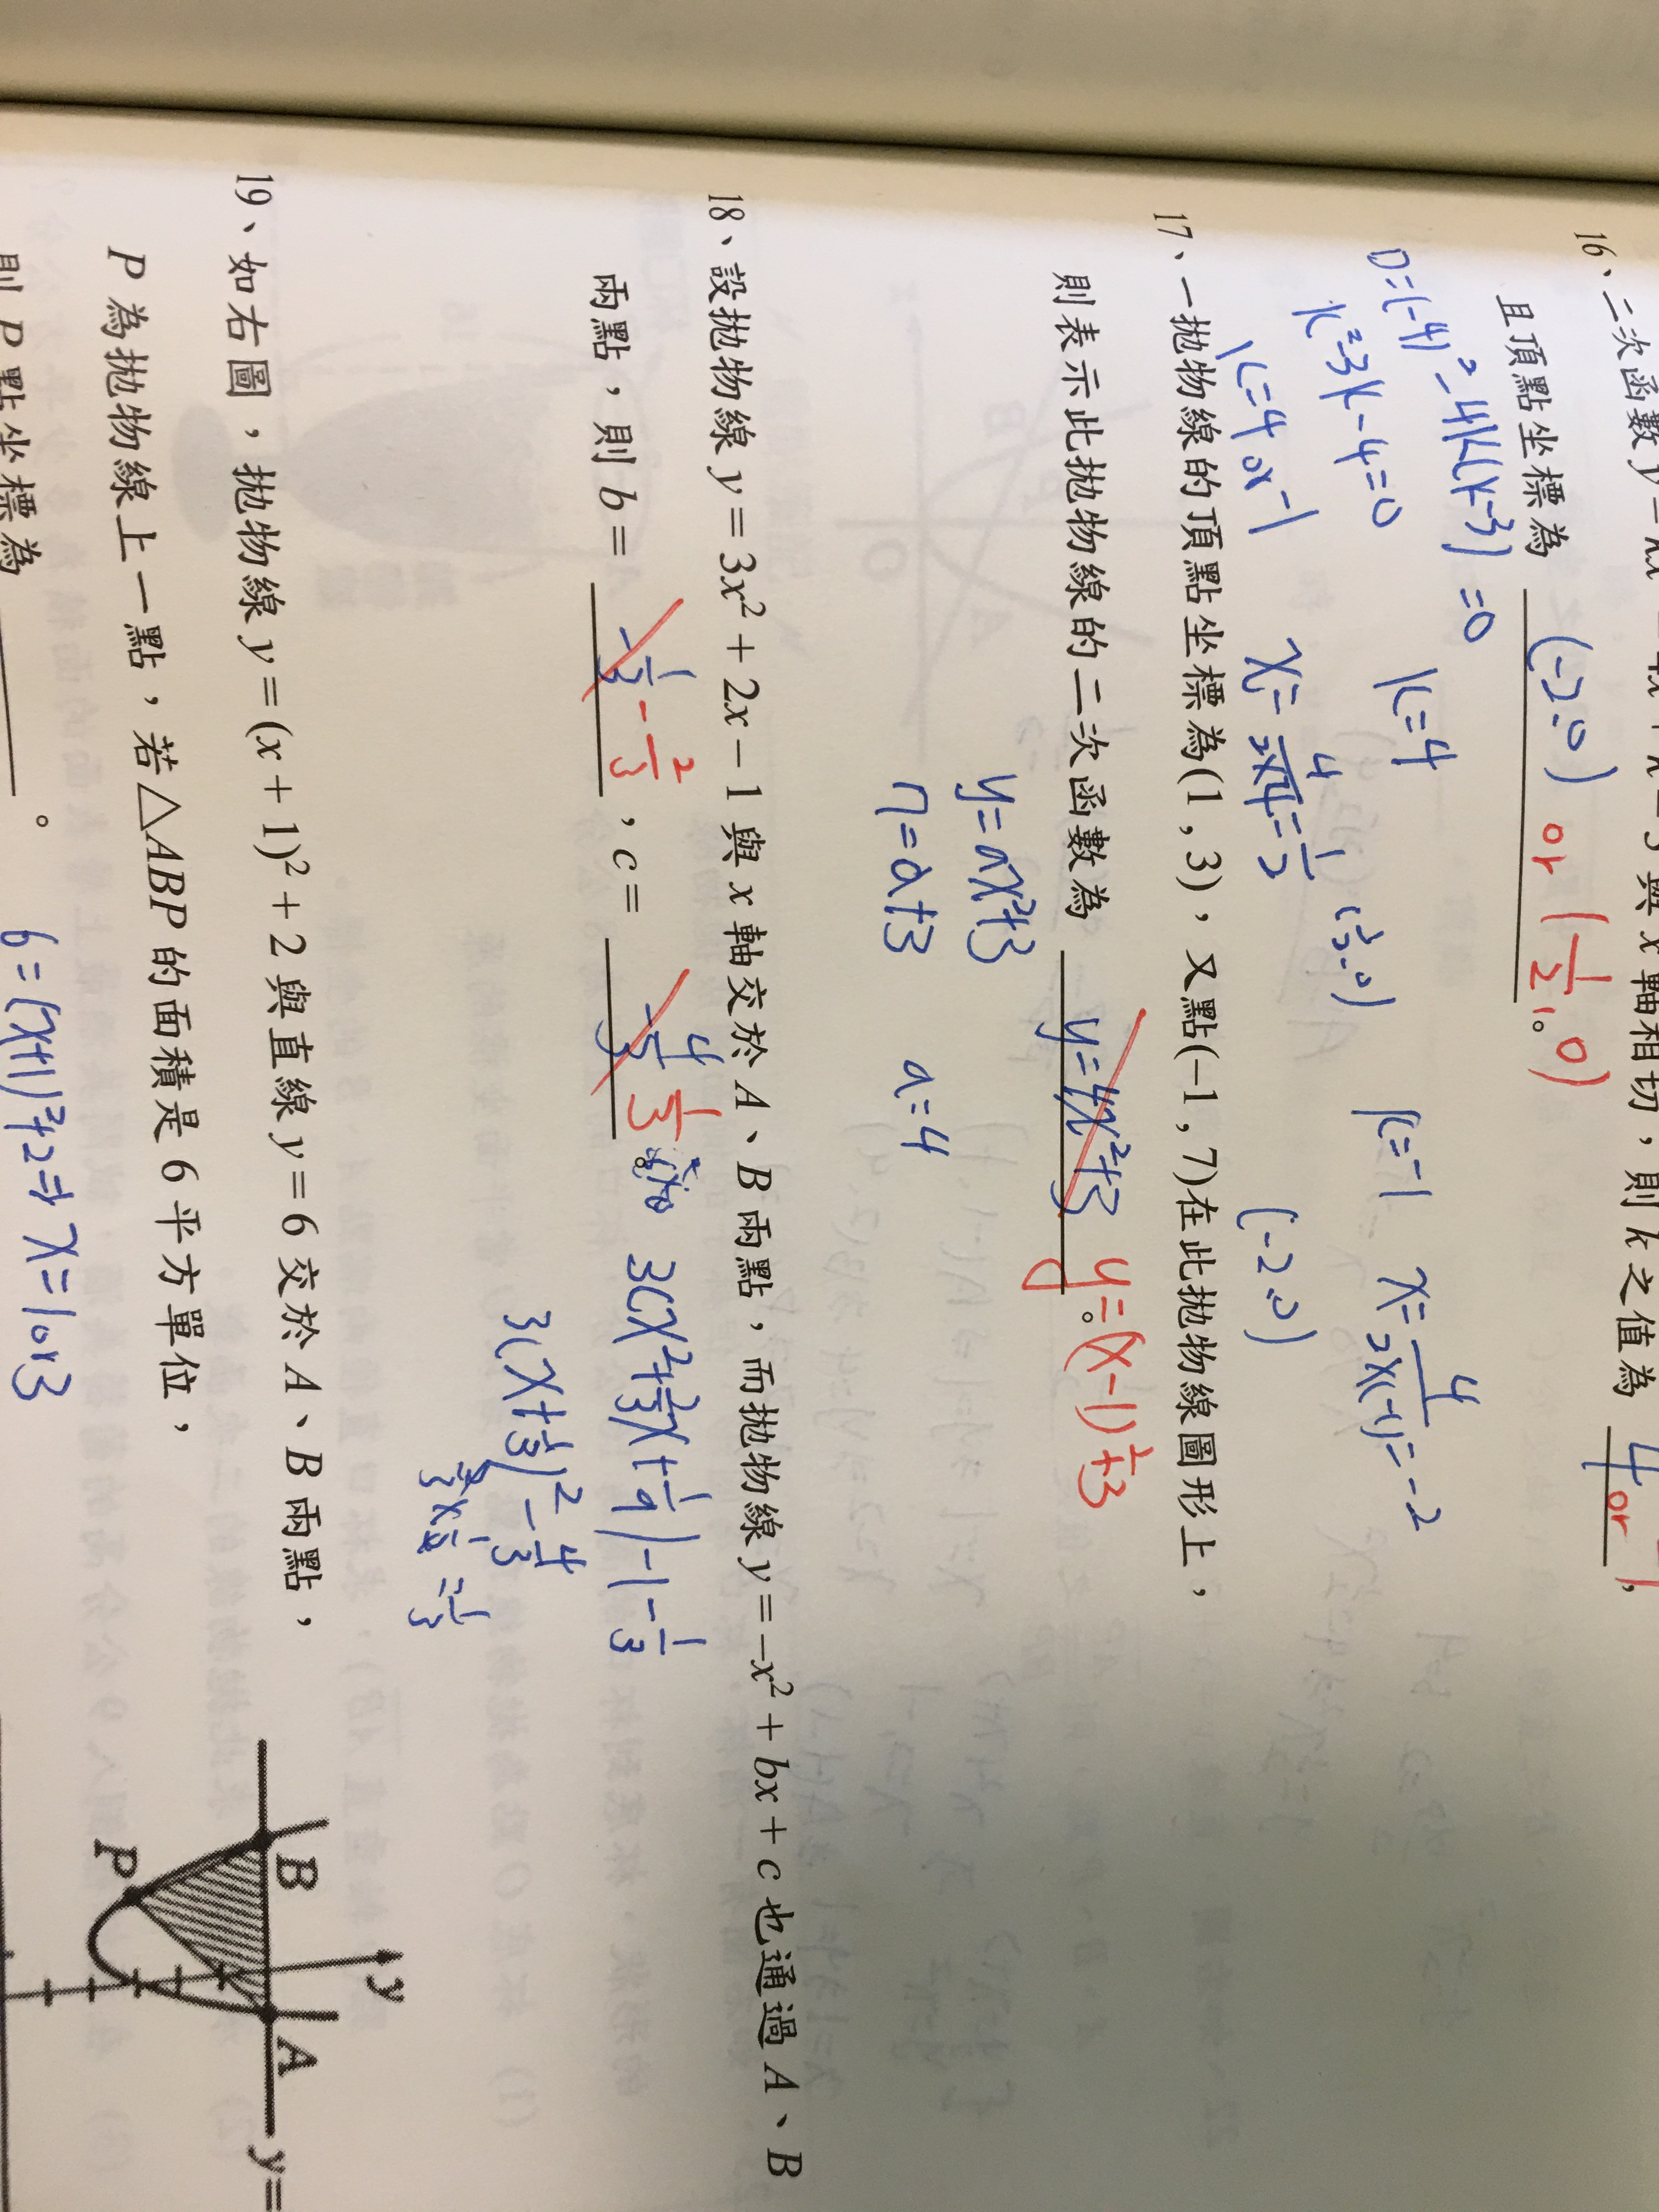 16、二次函數y=
與x軸相切，則k之值為 4 or ，
且頂點坐標為 (-2,0) or (1/2,0)。
D=(-4)²-4k(k-3)=0
k²-3k-4=0
k=4 or -1
k=4
x=4/(2×4)=1/2
(1/2,0)
k=-1
x=4/(2×(-1))=-2
(-2,0)
17、一拋物線的頂點坐標為(1,3)，又點(-1,7)在此拋物線圖形上，
則表示此拋物線的二次函數為 y=4x²+3 y=(x-1)²+3。
y=ax²+3
7=a+3
a=4
18、設拋物線y=3x²+2x-1與x軸交於A、B兩點，而拋物線y=-x²+bx+c也通過A、B
兩點，則b= -1/3 -2/3，c= -4/3 1/3。
3(x²+2/3x+1/9)-1-1/3
3(x+1/3)²-4/3
19、如右圖，拋物線y=(x+1)²+2與直線y=6交於A、B兩點，
P為拋物線上一點，若△ABP的面積是6平方單位，
則P點坐標為 。
6=(x+1)²+2⇒x=1 or 3
y
B
A
y=
P